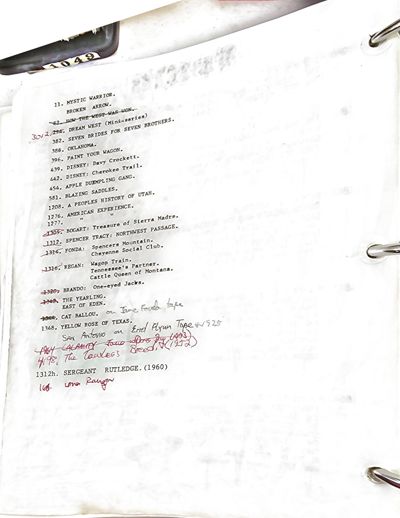 1049
11. MYSTIC WARRIOR.
BROKEN ARROW.
62. HOW THE WEST WAS WON.
3012. 298. DREAM WEST (Mini-series)
382. SEVEN BRIDES FOR SEVEN BROTHERS.
388. OKLAHOMA.
396. PAINT YOUR WAGON.
439. DISNEY: Davy Crockett.
442. DISNEY: Cherokee Trail.
454. APPLE DUMPLING GANG.
581. BLAZING SADDLES.
1208. A PEOPLES HISTORY OF UTAH.
1276. AMERICAN EXPERIENCE.
1277. " "
1309. BOGART: Treasure of Sierra Madre.
1312. SPENCER TRACY: NORTHWEST PASSAGE.
1316. FONDA: Spencers Mountain.
Cheyenne Social Club.
1318. REGAN: Wagon Train.
Tennessee's Partner.
Cattle Queen of Montana.
1320. BRANDO: One-eyed Jacks.
THE YEARLING.
EAST OF EDEN.
CAT BALLOU. on Jane Fonda tape
1348. YELLOW ROSE OF TEXAS.
San Antonio on Errol Flynn Tape # 925
The Lawless Breed. (1952)
1312h. SERGEANT RUTLEDGE. (1960)
Lone Ranger